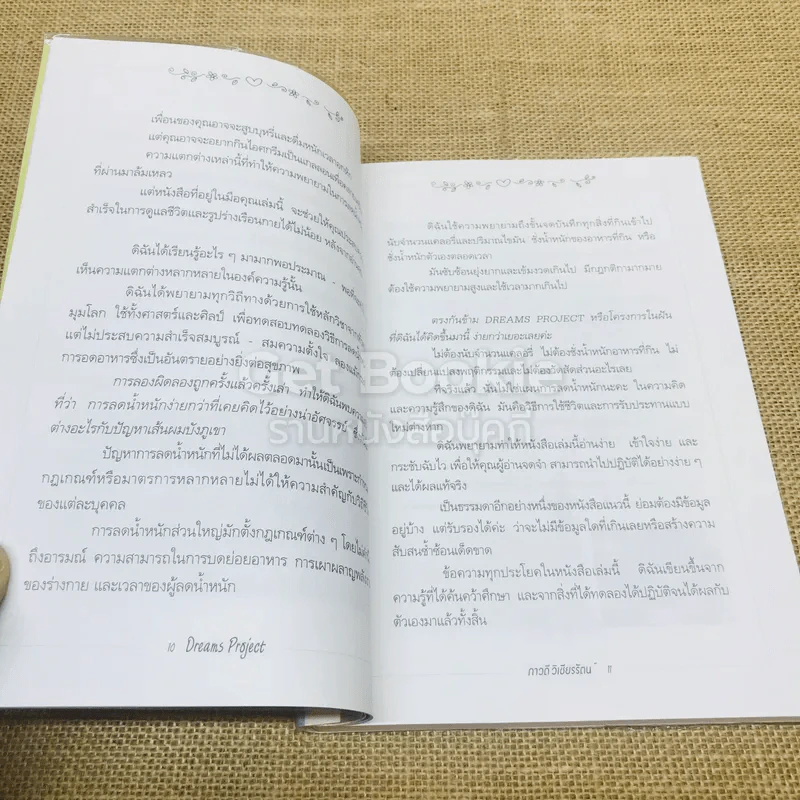 เพื่อนของคุณอาจจะสูบบุหรี่และดื่มหนัก
แต่คุณอาจจะอยากกินไอศกรีมเป็นแกลลอน
ความแตกต่างเหล่านี้ที่ทำให้ความพยายามใน
ที่ผ่านมาล้มเหลว
แต่หนังสือที่อยู่ในมือคุณเล่มนี้ จะช่วยให้คุณ
สำเร็จในการดูแลชีวิตและรูปร่างเรือนกายได้ไม่น้อย หลังจาก
ดิฉันได้เรียนรู้อะไร ๆ มามากพอประมาณ -
เห็นความแตกต่างหลากหลายในองค์ความรู้นั้น
ดิฉันได้พยายามทุกวิถีทางด้วยการใช้หลักวิชา
มุมโลก ใช้ทั้งศาสตร์และศิลป์ เพื่อทดสอบทดลองวิธีการ
แต่ไม่ประสบความสำเร็จสมบูรณ์ - สมความตั้งใจ
การอดอาหารซึ่งเป็นอันตรายอย่างยิ่งต่อสุขภาพ
การลองผิดลองถูกครั้งแล้วครั้งเล่า ทำให้ดิฉัน
ที่ว่า การลดน้ำหนักง่ายกว่าที่เคยคิดไว้อย่างน่าอัศจรรย์
ต่างอะไรกับปัญหาเส้นผมบังภูเขา
ปัญหาการลดน้ำหนักที่ไม่ได้ผลตลอดมานั้นเป็นเพราะ
กฎเกณฑ์หรือมาตรการหลากหลายไม่ได้ให้ความสำคัญกับ
ของแต่ละบุคคล
การลดน้ำหนักส่วนใหญ่มักตั้งกฎเกณฑ์ต่าง ๆ
ถึงอารมณ์ ความสามารถในการบดย่อยอาหาร การเผาผลาญ
ของร่างกาย และเวลาของผู้ลดน้ำหนัก
10 Dreams Project
ดิฉันใช้ความพยายามถึงขั้นจดบันทึกทุกสิ่งที่กินเข้าไป
นับจำนวนแคลอรีและปริมาณไขมัน ชั่งน้ำหนักของอาหารที่กิน หรือ
ชั่งน้ำหนักตัวเองตลอดเวลา
มันซับซ้อนยุ่งยากและเข้มงวดเกินไป มีกฎกติกามากมาย
ต้องใช้ความพยายามสูงและใช้เวลามากเกินไป
ตรงกันข้าม DREAMS PROJECT หรือโครงการในฝัน
ที่ดิฉันได้คิดขึ้นมานี้ ง่ายกว่าเยอะเลยค่ะ
ไม่ต้องนับจำนวนแคลอรี ไม่ต้องชั่งน้ำหนักอาหารที่กิน ไม่
ต้องเปลี่ยนแปลงพฤติกรรมและไม่ต้องวัดสัดส่วนอะไรเลย
ที่จริงแล้ว มันไม่ใช่แผนการลดน้ำหนักนะคะ ในความคิด
และความรู้สึกของดิฉัน มันคือวิธีการใช้ชีวิตและการรับประทานแบบ
ใหม่ต่างหาก
ดิฉันพยายามทำให้หนังสือเล่มนี้อ่านง่าย เข้าใจง่าย และ
กระชับฉับไว เพื่อให้คุณผู้อ่านจดจำ สามารถนำไปปฏิบัติได้อย่างง่าย ๆ
และได้ผลแท้จริง
เป็นธรรมดาอีกอย่างหนึ่งของหนังสือแนวนี้ ย่อมต้องมีข้อมูล
อยู่บ้าง แต่รับรองได้ค่ะ ว่าจะไม่มีข้อมูลใดที่เกินเลยหรือสร้างความ
สับสนซ้ำซ้อนเด็ดขาด
ข้อความทุกประโยคในหนังสือเล่มนี้ ดิฉันเขียนขึ้นจาก
ความรู้ที่ได้ค้นคว้าศึกษา และจากสิ่งที่ได้ทดลองได้ปฏิบัติจนได้ผลกับ
ตัวเองมาแล้วทั้งสิ้น
ภาวดี วิเชียรรัตน์ 11
ร้านหนังสือบุคคี